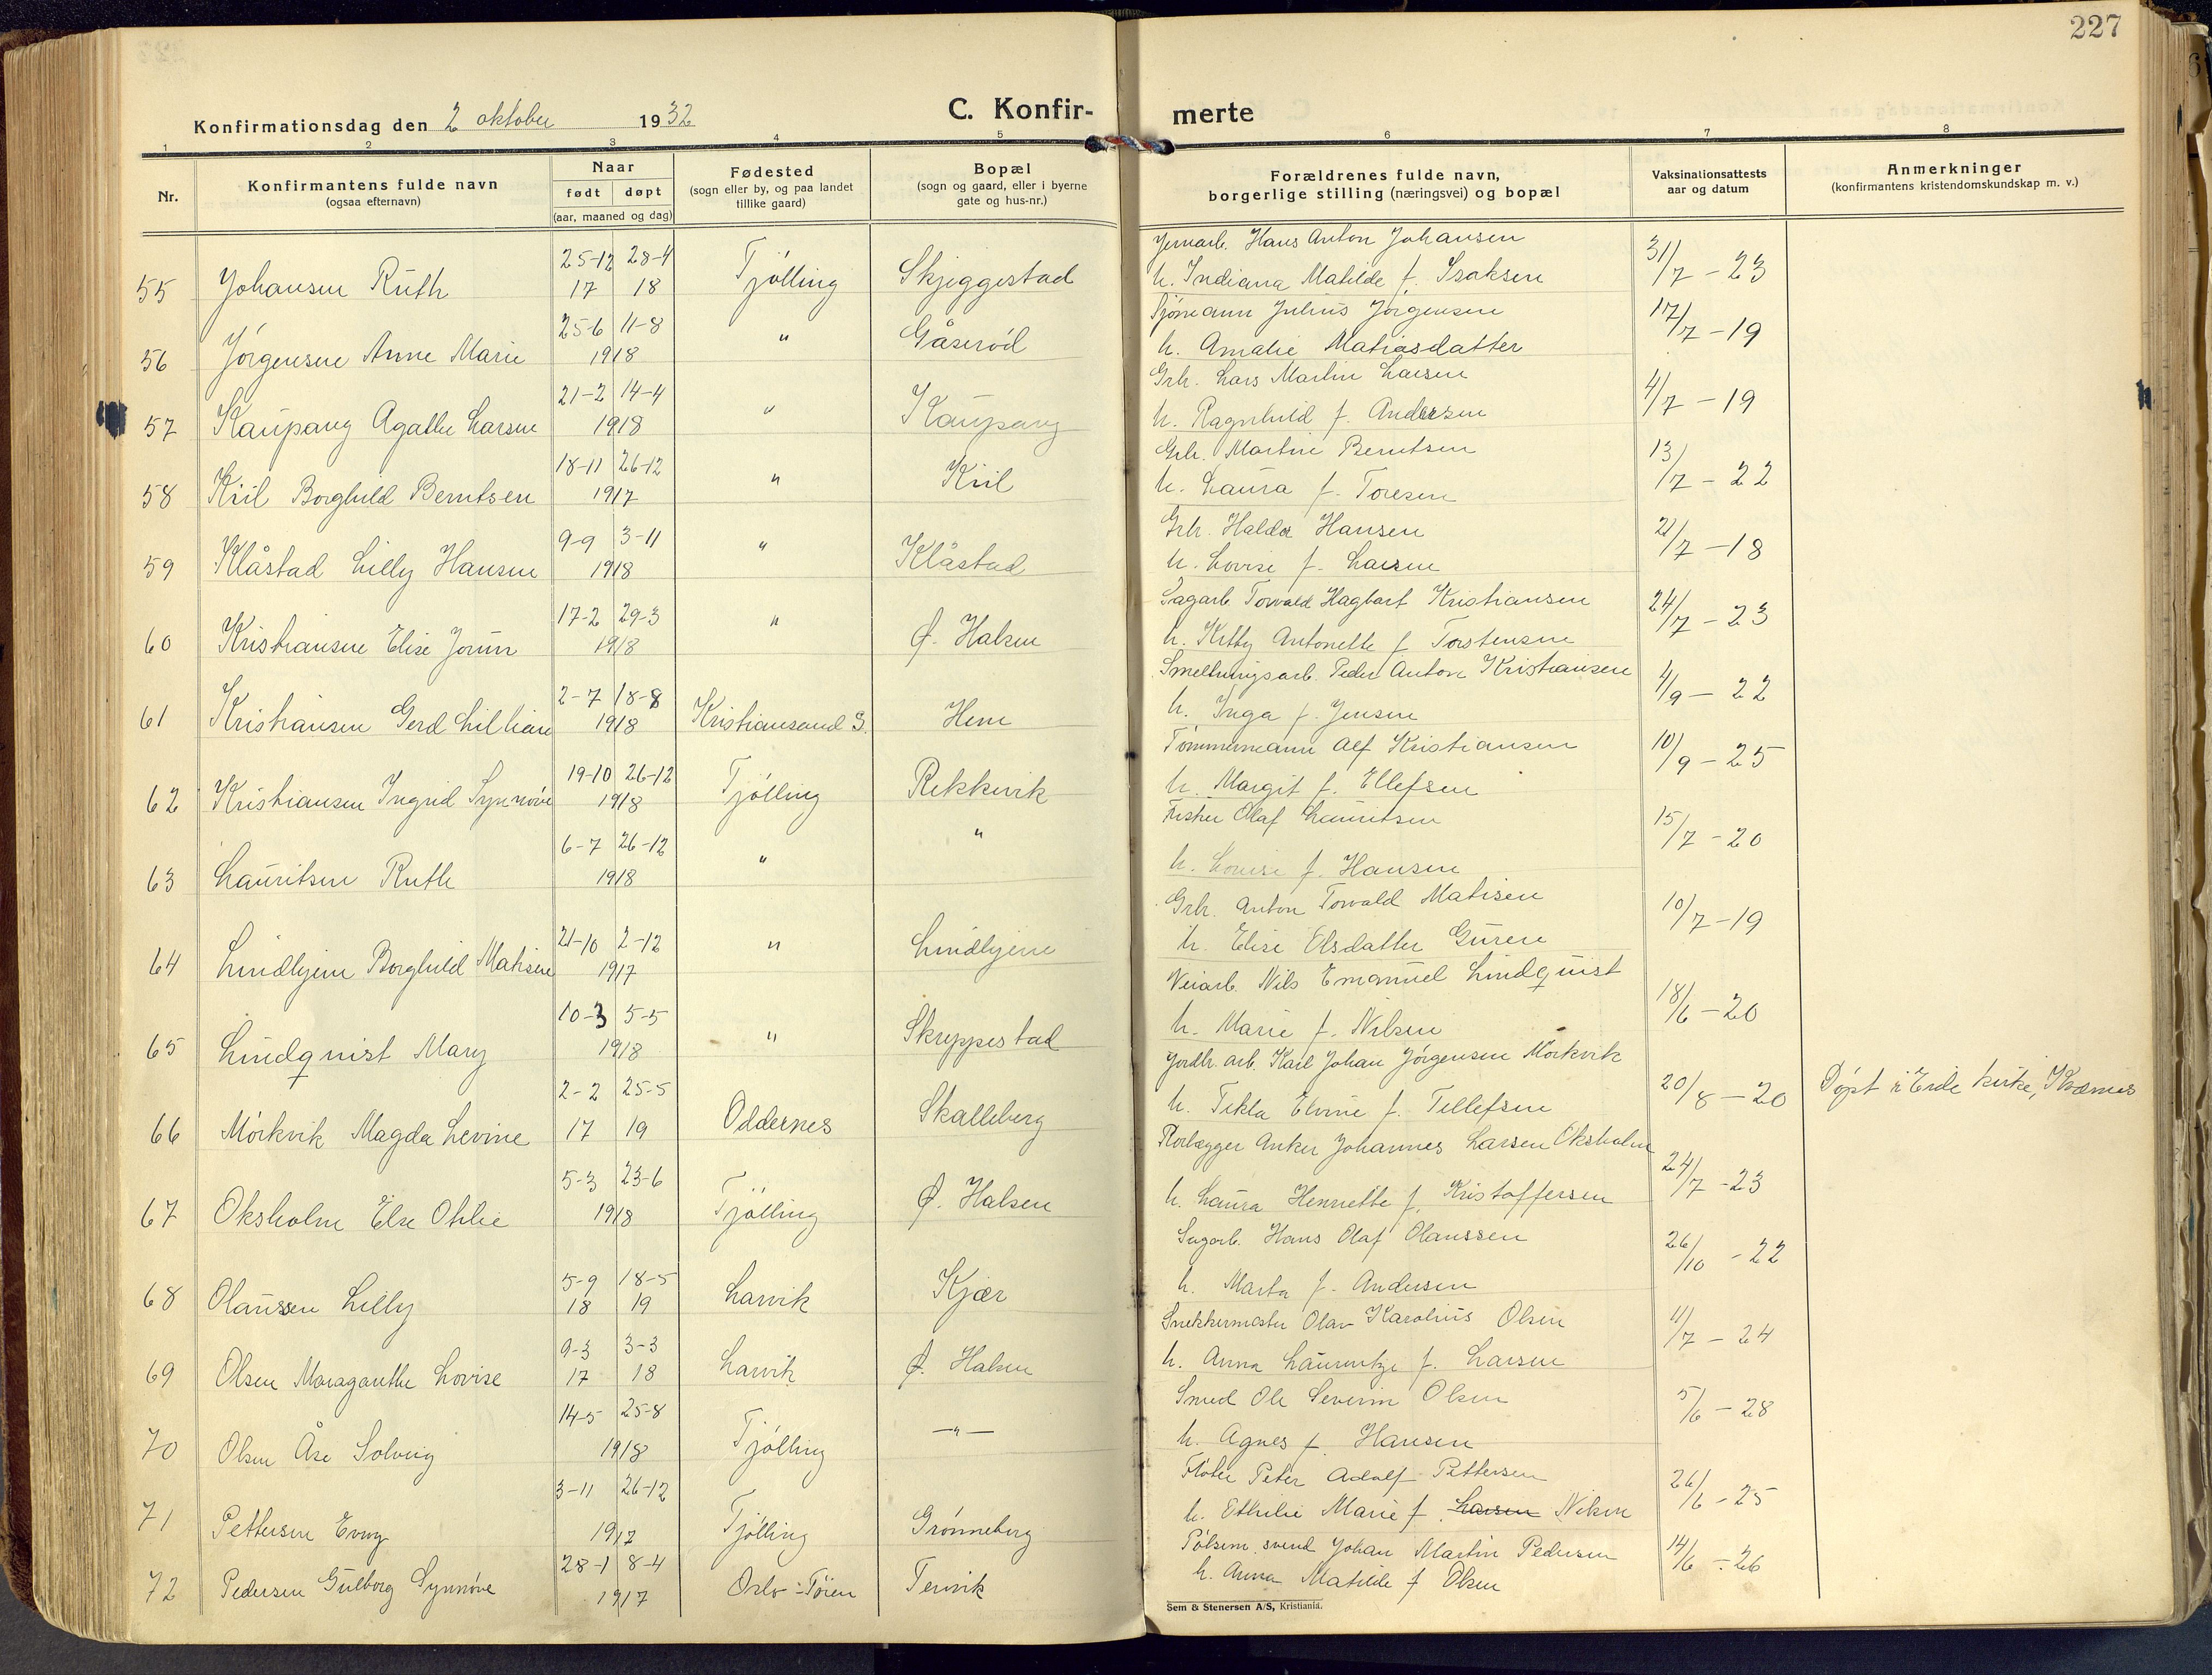 227
Konfirmationsdag den 2 oktober 1932
C. Konfir-
merte
1 2 3 4 5 6 7 8
Nr.
Konfirmantens fulde navn
(ogsaa efternavn)
Naar
født døpt
(aar, maaned og dag)
Fødested
(sogn eller by, og paa landet
tillike gaard)
Bopæl
(sogn og gaard, eller i byerne
gate og hus-nr.)
Forældrenes fulde navn,
borgerlige stilling (næringsvei) og bopæl
Vaksinationsattests
aar og datum
Anmerkninger
(konfirmantens kristendomskundskap m. v.)
25-12 28-4 Jernarb. Hans Anton Johansen
55 Johansen Ruth 17 18 Tjølling Skjeggestad h. Indiana Matilde f. Isaksen 31/7 - 23
25-6 11-8 Sjømann Julius Jørgensen
56 Jørgensen Anne Marie 1918 " Gåserød h. Amalie Matiasdatter 17/7 - 19
21-2 14-4 Grb. Lars Martin Larsen
57 Kaupang Agathe Larsen 1918 " Kaupang h. Ragnhild f. Andersen 4/7 - 19
18-11 26-12 Grb. Martin Berntsen
58 Kiil Borghild Berntsen 1917 " Kiil h. Laura f. Toresen 13/7 - 22
9-9 3-11 Grb. Haldor Hansen
59 Klåstad Lilly Hansen 1918 " Klåstad h. Lovise f. Larsen 21/7 - 18
17-2 29-3 Sagarb. Torvald Hagbart Kristiansen
60 Kristiansen Elise Jorun 1918 " Ø. Halsen h. Kitty Antonette f Torstensen 24/7 - 23
2-7 18-8 Smeltningsarb. Peder Anton Kristiansen
61 Kristiansen Gerd Lillian 1918 Kristiansand S. Hem h. Inga f. Jensen 4/9 - 22
19-10 26-12 Tømmermann Alf Kristiansen
62 Kristiansen Ingrid Synnøve 1918 Tjølling Rekkevik h. Margit f. Ellefsen 10/9 - 25
6-7 26-12 Fisker Olaf Lauritsen
63 Lauritsen Ruth 1918 " " h. Lovise f. Hansen 15/7 - 20
21-10 2-12 Grb. Anton Torvald Matisen
64 Lindhjem Borghild Matisen 1917 " Lindhjem h. Elise Olsdatter Guren 10/7 - 19
10-3 5-5 Veiarb. Nils Emanuel Lindquist
65 Lindquist Mary 1918 " Skreppestad h. Marie f. Nilsen 18/6 - 20
2-2 25-5 Jordbr. arb. Karl Johan Jørgensen Mørkvik
66 Mørkvik Magda Levine 17 19 Oddernes Skalleberg h. Tekla Elvine f. Tellefsen 20/8 - 20 Døpt i Eide kirke,
5-3 23-6 Rørlægger Anker Johannes Larsen Oksholm
67 Oksholm Else Otilie 1918 Tjølling Ø. Halsen h. Laura Henriette f. Kristoffersen 24/7 - 23
5-9 18-5 Sagarb. Hans Olaf Olaussen
68 Olaussen Lilly 18 19 Larvik Kjær h. Marta f. Andersen 26/10 - 22
9-3 3-3 Snekkermester Olav Karolius Olsen
69 Olsen Maraganthe Lovise 17 18 Larvik Ø. Halsen h. Anna Laurentze f. Larsen 11/7 - 24
14-5 25-8 Smed Ole Severin Olsen
70 Olsen Åse Solveig 1918 Tjølling —"— h. Agnes f. Hansen 5/6 - 28
3-11 26-12 Fløter Peter Adolf Pettersen
71 Pettersen Evny 1917 Tjølling Grønneberg h. Othilie Marie f. Larsen Nilsen 26/6 - 25
28-1 8-4 Pølsem. svend Johan Martin Pedersen
72 Pedersen Gulborg Synnøve 1917 Oslo - Tøien Tenvik h. Anna Matilde f Olsen 14/6 - 26
Sem & Stenersen A/S, Kristiania.